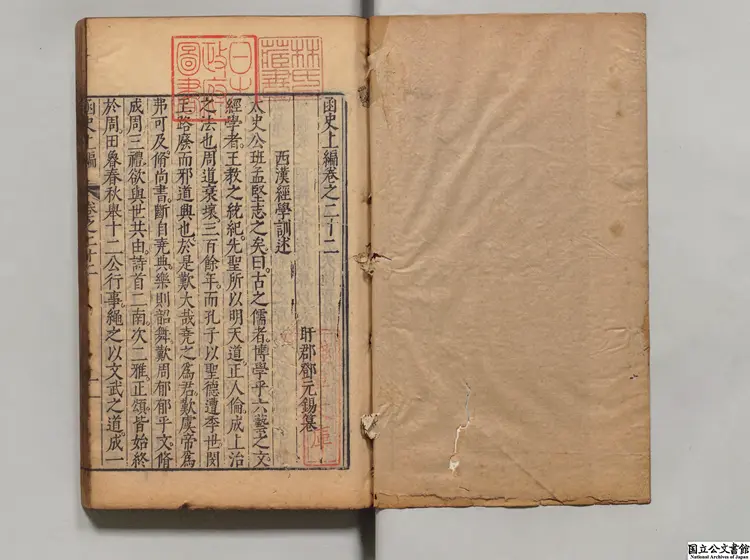 林氏藏書
日本政府圖書
函史上編卷之二十二
盱郡鄧元錫纂
西漢經學訓述
太史公班孟堅志之矣。曰古之儒者博學乎六藝之文
經學者。王教之統紀。先聖所以明天道。正人倫。成上治
之法也。周道衰壞。三百餘年。而孔子以聖德遭季世。閔
王路廢而邪道興也。於是歎大哉堯之爲君。歎虞帝爲
弗可及。脩尚書斷自堯典。樂則韶舞。歎周郁郁乎文。脩
成周三禮。欲與世共由。詩首二南。次二雅。正頌。皆始終
於周。因魯春秋舉十二公行事。繩之以文武之道。成一
函史上編
卷之二十二
国立公文書館
National Archives of Japan